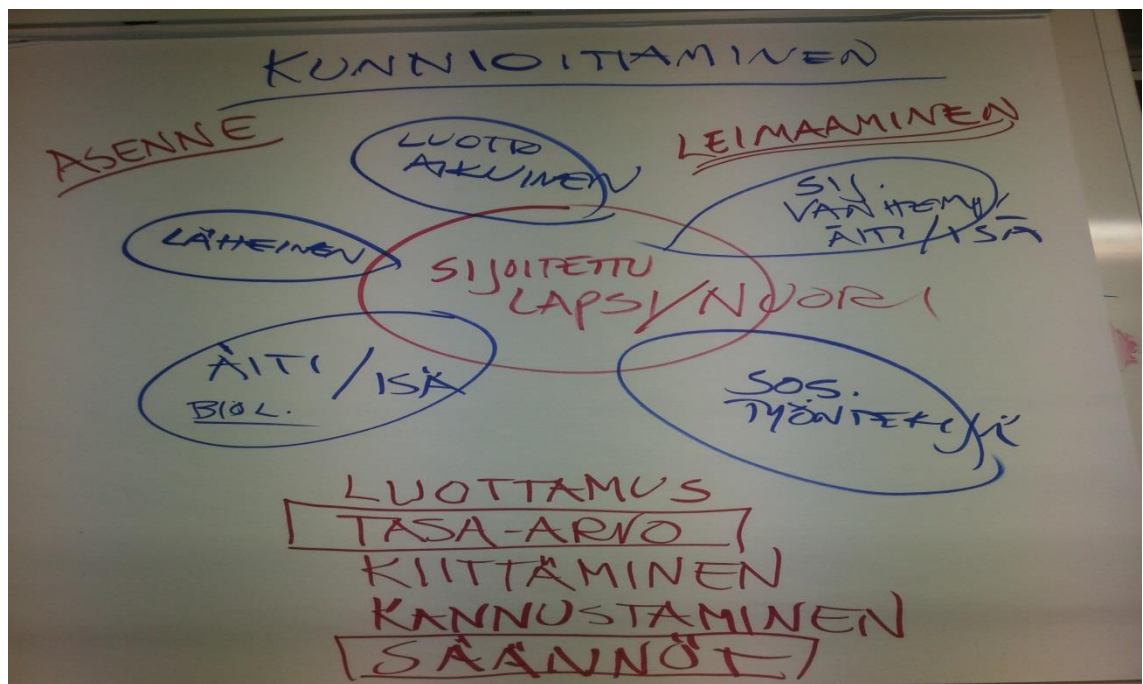 KUNNIOITTAMINEN
ASENNE
LEIMAAMINEN
LUOTTO
AIKUINEN
SIJ.
VANHEMM/
ÄITI/ISÄ
LÄHEINEN
SIJOITETTU
LAPSI/NUORI
ÄITI/ISÄ
BIOL.
SOS.
TYÖNTEKIJÄ
LUOTTAMUS
TASA-ARVO
KIITTÄMINEN
KANNUSTAMINEN
SÄÄNNÖT